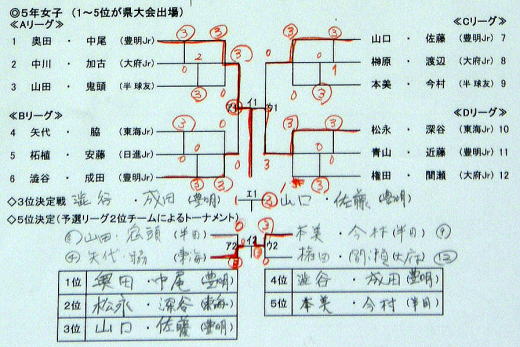 ◎５年女子 （１～５位が県大会出場）
≪Aリーグ≫
1 奥田 ・ 中尾 (豊明Jr)
2 中川 ・ 加古 (大府Jr)
3 山田 ・ 鬼頭 (半 球友)
≪Bリーグ≫
4 矢代 ・ 脇 (東海Jr)
5 柘植 ・ 安藤 (日進Jr)
6 澁谷 ・ 成田 (豊明Jr)
≪Cリーグ≫
山口 ・ 佐藤 (豊明Jr) 7
榊原 ・ 渡辺 (大府Jr) 8
本美 ・ 今村 (半 球友) 9
≪Dリーグ≫
松永 ・ 深谷 (東海Jr) 10
青山 ・ 近藤 (豊明Jr) 11
権田 ・ 間瀬 (大府Jr) 12
◇３位決定戦 澁谷 ・ 成田 (豊明) エ1 ③ 山口 ・ 佐藤 (豊明)
◇５位決定（予選リーグ２位チームによるトーナメント）
③ 山田 ・ 鬼頭 (半田) 0 ③ 本美 ・ 今村 (半田) ⑨
④ 矢代 ・ 脇 (東海) ア2 ウ2 権田 ・ 間瀬 (大府) ⑫
1位 奥田 ・ 中尾 (豊明)
2位 松永 ・ 深谷 (東海)
3位 山口 ・ 佐藤 (豊明)
4位 澁谷 ・ 成田 (豊明)
5位 本美 ・ 今村 (半田)